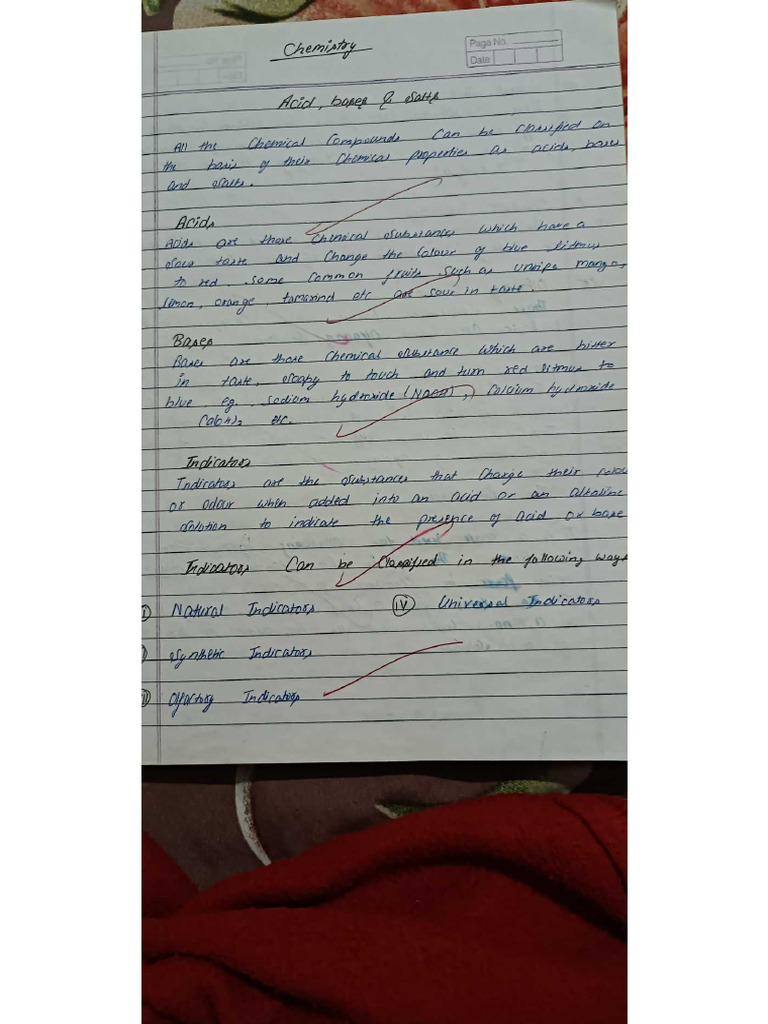 Chemistry
Page No.
Date
Acid, bases & Salts
All the Chemical Compounds Can be Classified on
the basis of their Chemical properties as acids, bases
and Salts.
Acids
Acids are those Chemical Substances which have a
Sour taste and Change the Colour of blue litmus
to red. Some Common fruits such as unripe mango,
limon, orange, tamarind etc are sour in taste
Bases
Bases are those Chemical Substance which are bitter
in taste, Soapy to touch and turn red litmus to
blue eg. Sodium hydroxide (NaOH), Calcium hydroxide
Ca(OH)2 etc.
Indicators
Indicators are the Substances that Change their Colou
or odour when added into an acid or an alkaline
Solution to indicate the presence of acid or base
Indicators Can be Classified in the following ways
I Natural Indicators
IV Universal Indicators
Synthetic Indicators
Olfactory Indicators